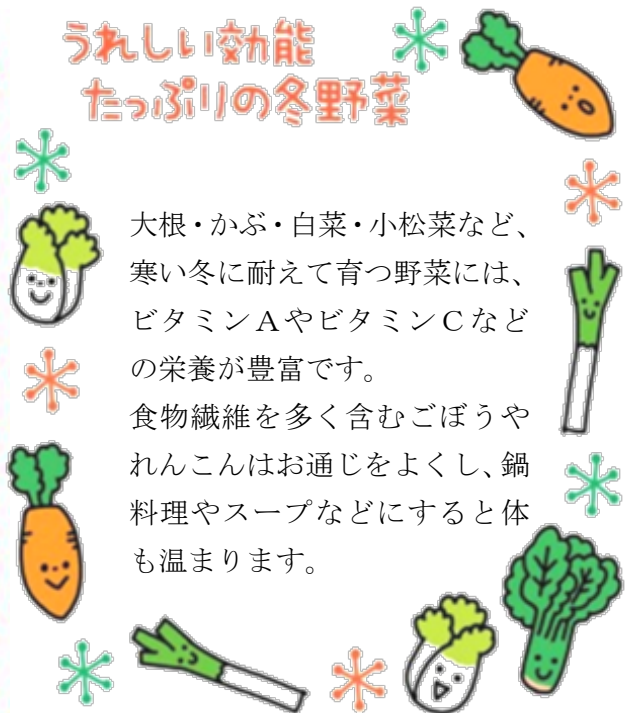 うれしい効能
たっぷりの冬野菜
大根・かぶ・白菜・小松菜など、
寒い冬に耐えて育つ野菜には、
ビタミンAやビタミンCなど
の栄養が豊富です。
食物繊維を多く含むごぼうや
れんこんはお通じをよくし、鍋
料理やスープなどにすると体
も温まります。